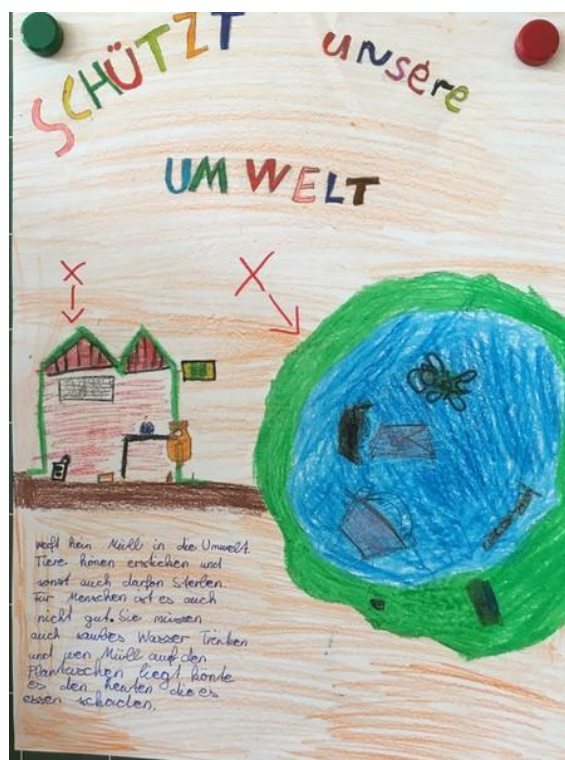 SCHÜTZT unsere
UMWELT
X
X
Weft kein Müll in die Umwelt.
Tiere könen ersticken und
sonst auch darfon Sterben.
Für Menschen ist es auch
nicht gut. Sie müssen
auch saubes Wasser Trinken
und wen Müll auf den
liegt könte
es den die es
essen schaden.